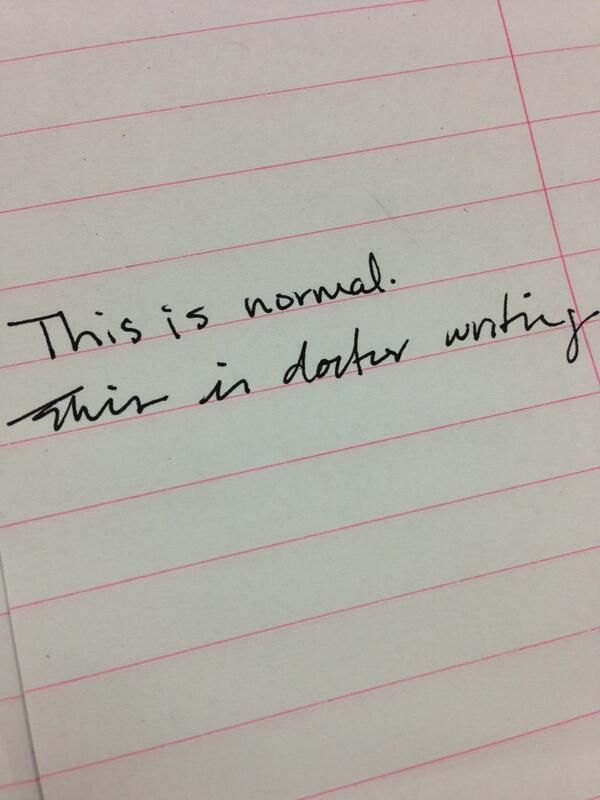 This is normal.
This is doctor writing